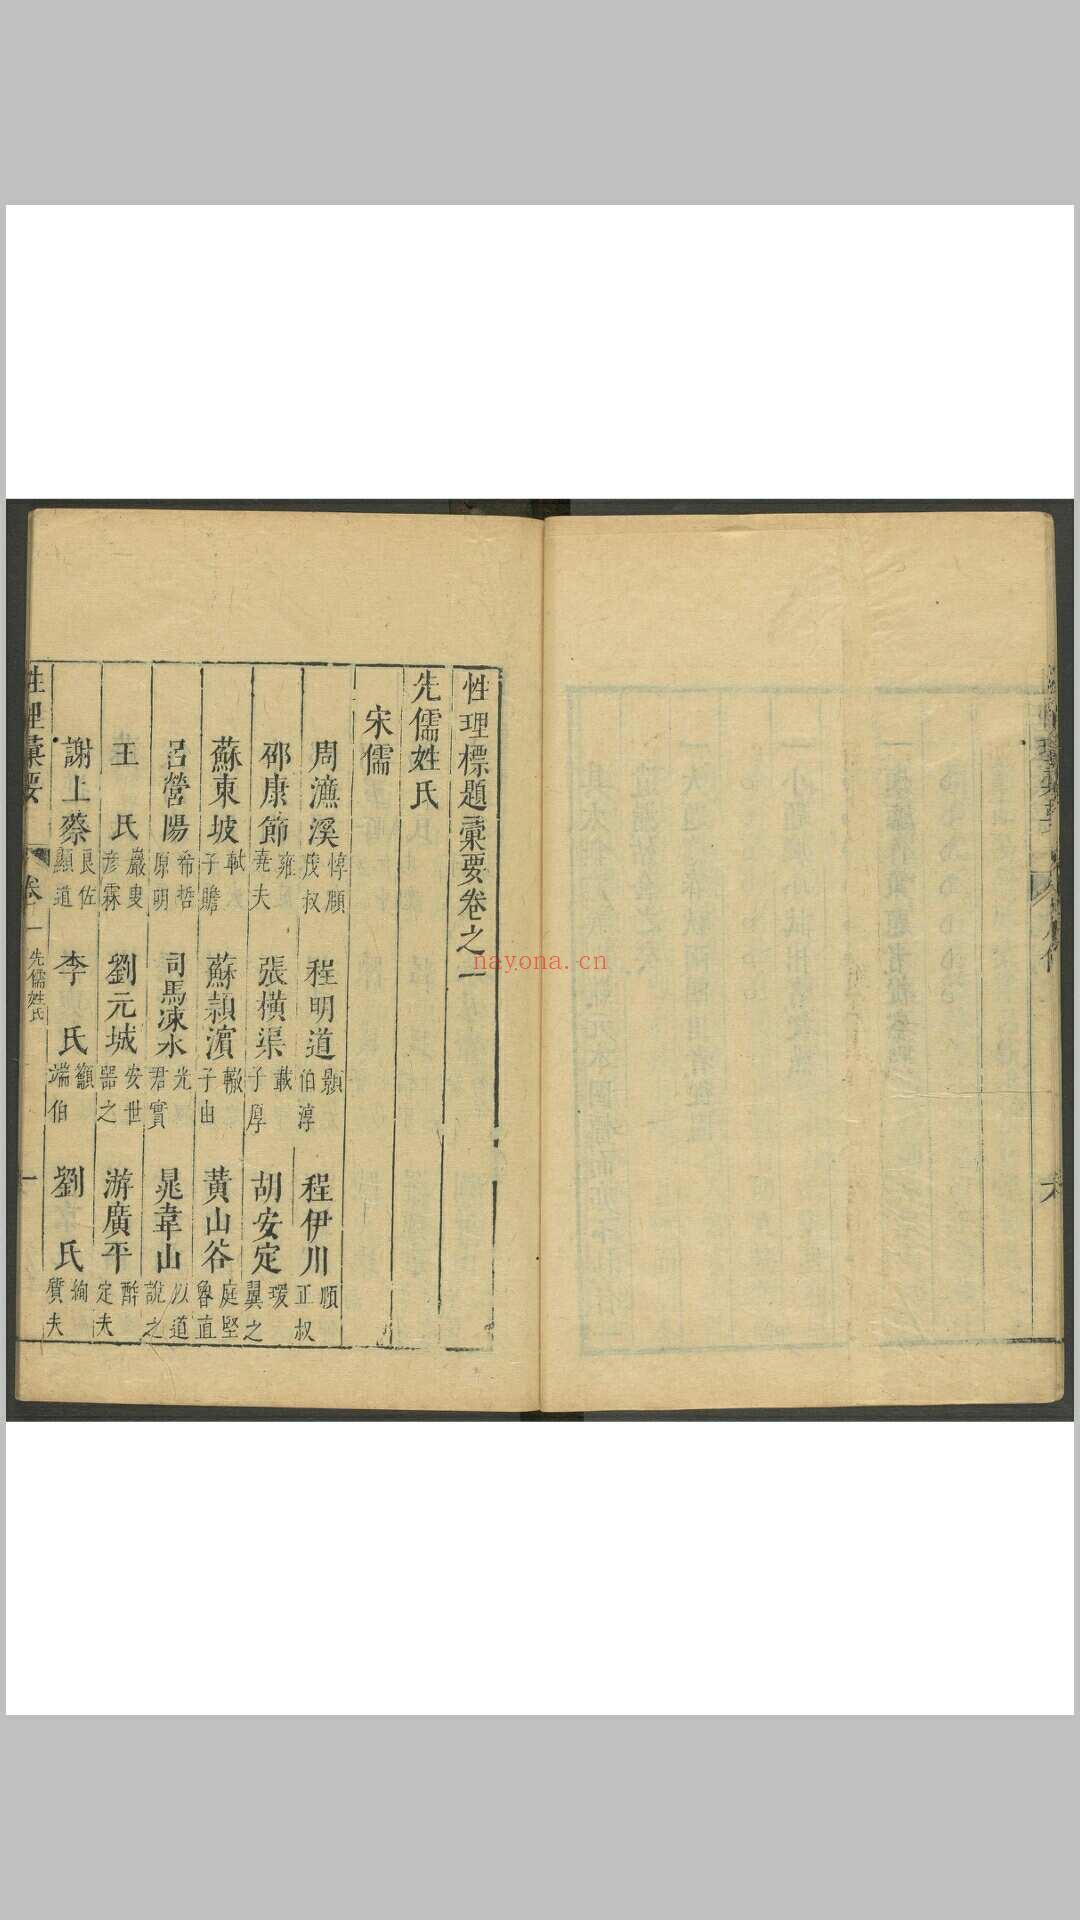 性理標題彙要卷之一
先儒姓氏
宋儒
周濂溪 惇頤 茂叔 程明道 顥 伯淳 程伊川 頤 正叔
邵康節 雍 堯夫 張橫渠 載 子厚 胡安定 瑗 翼之
蘇東坡 軾 子瞻 蘇潁濱 轍 子由 黃山谷 庭堅 魯直
呂滎陽 希哲 原明 司馬涑水 光 君實 晁韋山 以道 說之
王氏 巖叟 彥霖 劉元城 安世 器之 游廣平 酢 定夫
謝上蔡 良佐 顯道 李氏 籲 端伯 劉氏 絢 質夫
性理彙要 卷一 先儒姓氏 一
nayona.cn